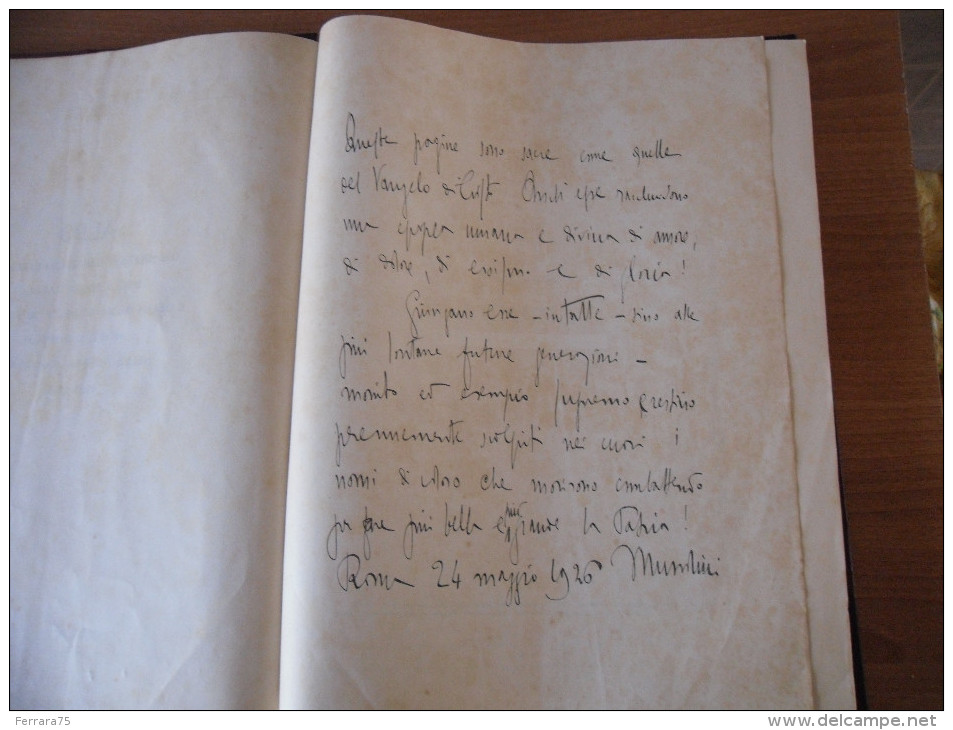 Queste pagine sono sacre come quelle
del Vangelo di Cristo Quindi esse racchiudono
una epopea umana e divina di amore,
di dolore, di e di gloria!
Giungano esse – intatte – sino alle
più lontane future generazioni –
monito ed esempio supremo e restino
perennemente scolpiti nei cuori i
nomi di coloro che morirono combattendo
per fare più bella e più grande la Patria!
Roma 24 maggio 1926 Mussolini
Ferrara75
www.delcampe.net